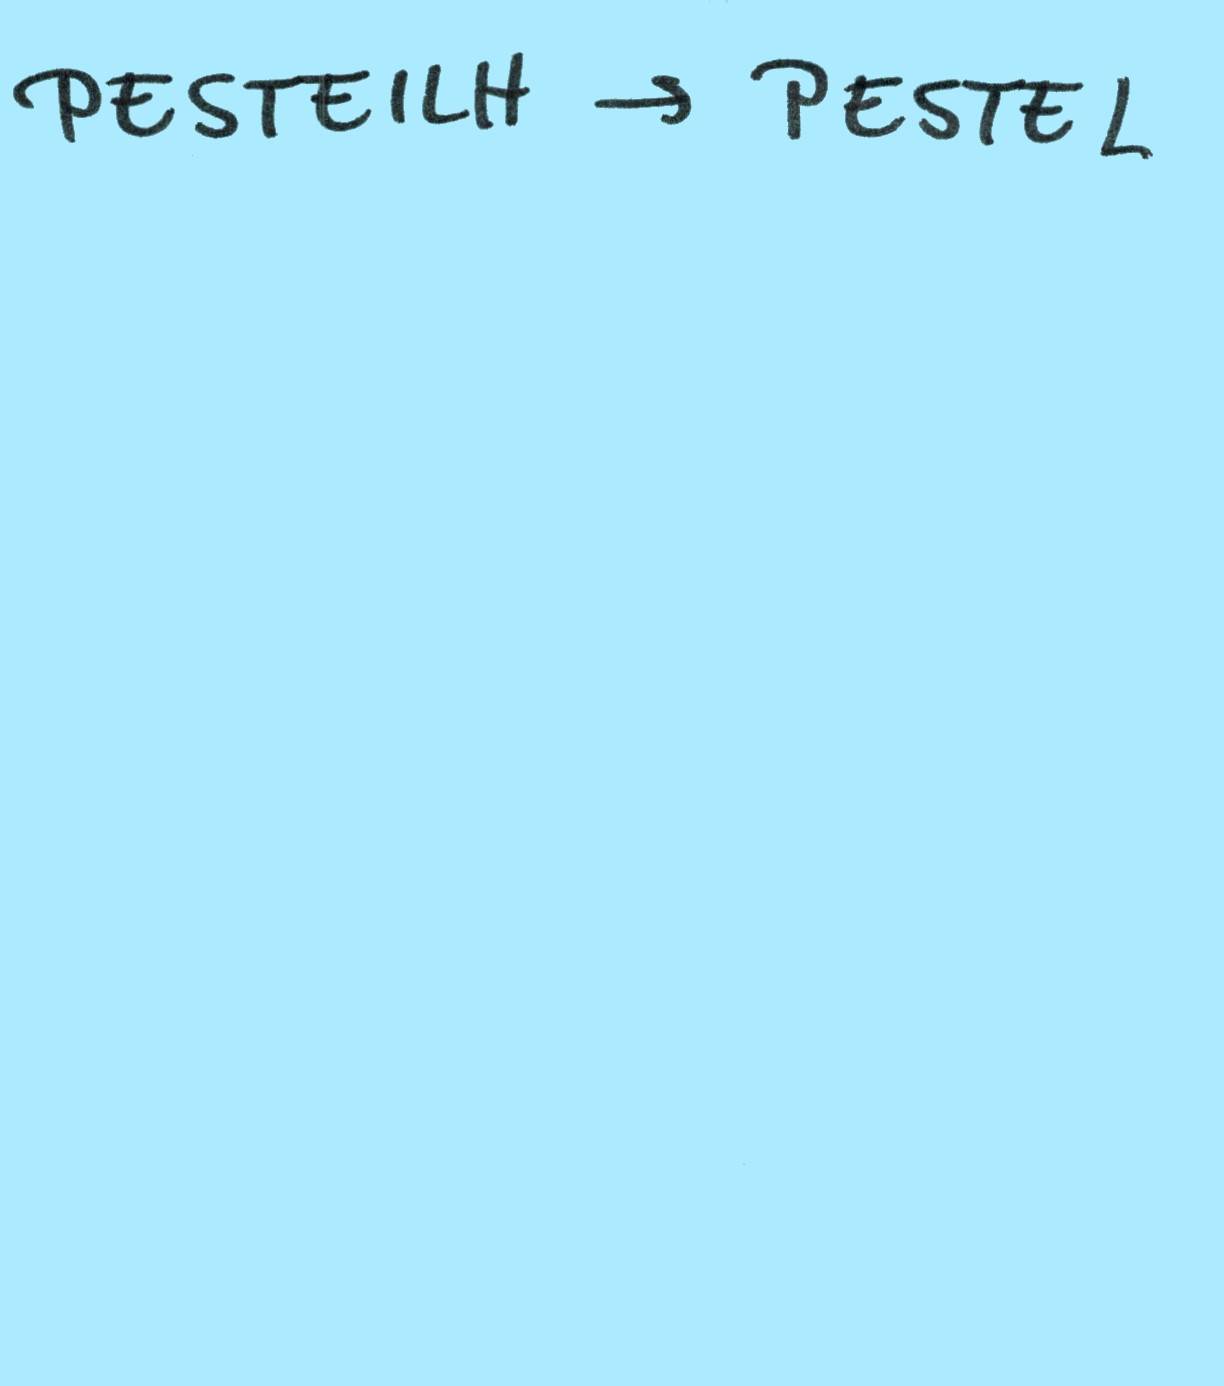 PESTEILH → PESTEL